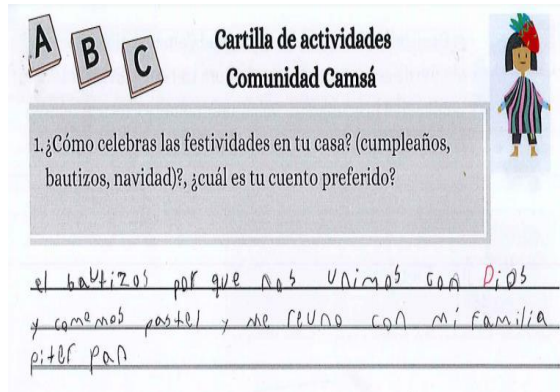 A B C
Cartilla de actividades
Comunidad Camsá
1.¿Cómo celebras las festividades en tu casa? (cumpleaños,
bautizos, navidad)?, ¿cuál es tu cuento preferido?
el bautizos por que nos unimos con Dios
y comemos pastel y me reuno con mi familia
piter pan